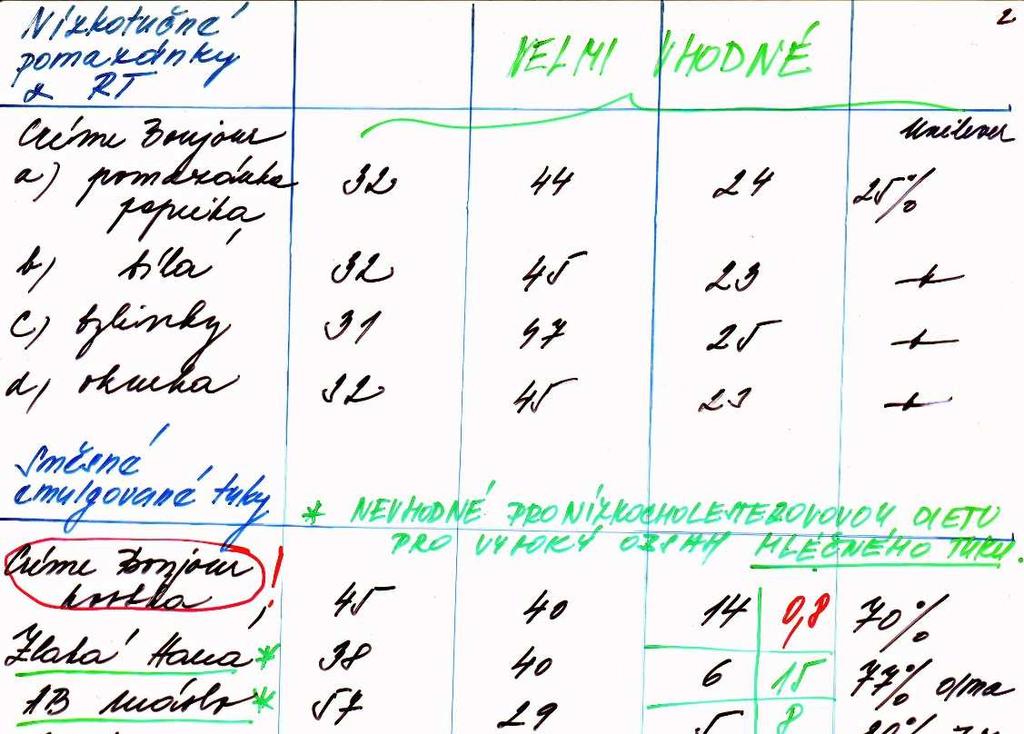 2
Nízkotučné
pomazánky
z RT
VELMI VHODNÉ
Créme Bonjour Unilever
a) pomazánka 32 44 24 25%
paprika
b) bílá 32 45 23
c) bylinky 31 47 25
d) okurka 32 45 23
Směsné
emulgované tuky
* NEVHODNÉ PRO NÍZKOCHOLESTEROVOVOU DIETU
PRO VYSOKÝ OBSAH MLÉČNÉHO TUKU.
Créme Bonjour !
kostka 45 40 14 0,8 70%
Zlatá Haná * 38 40 6 15 77% olma
AB máslo * 57 29 5 8